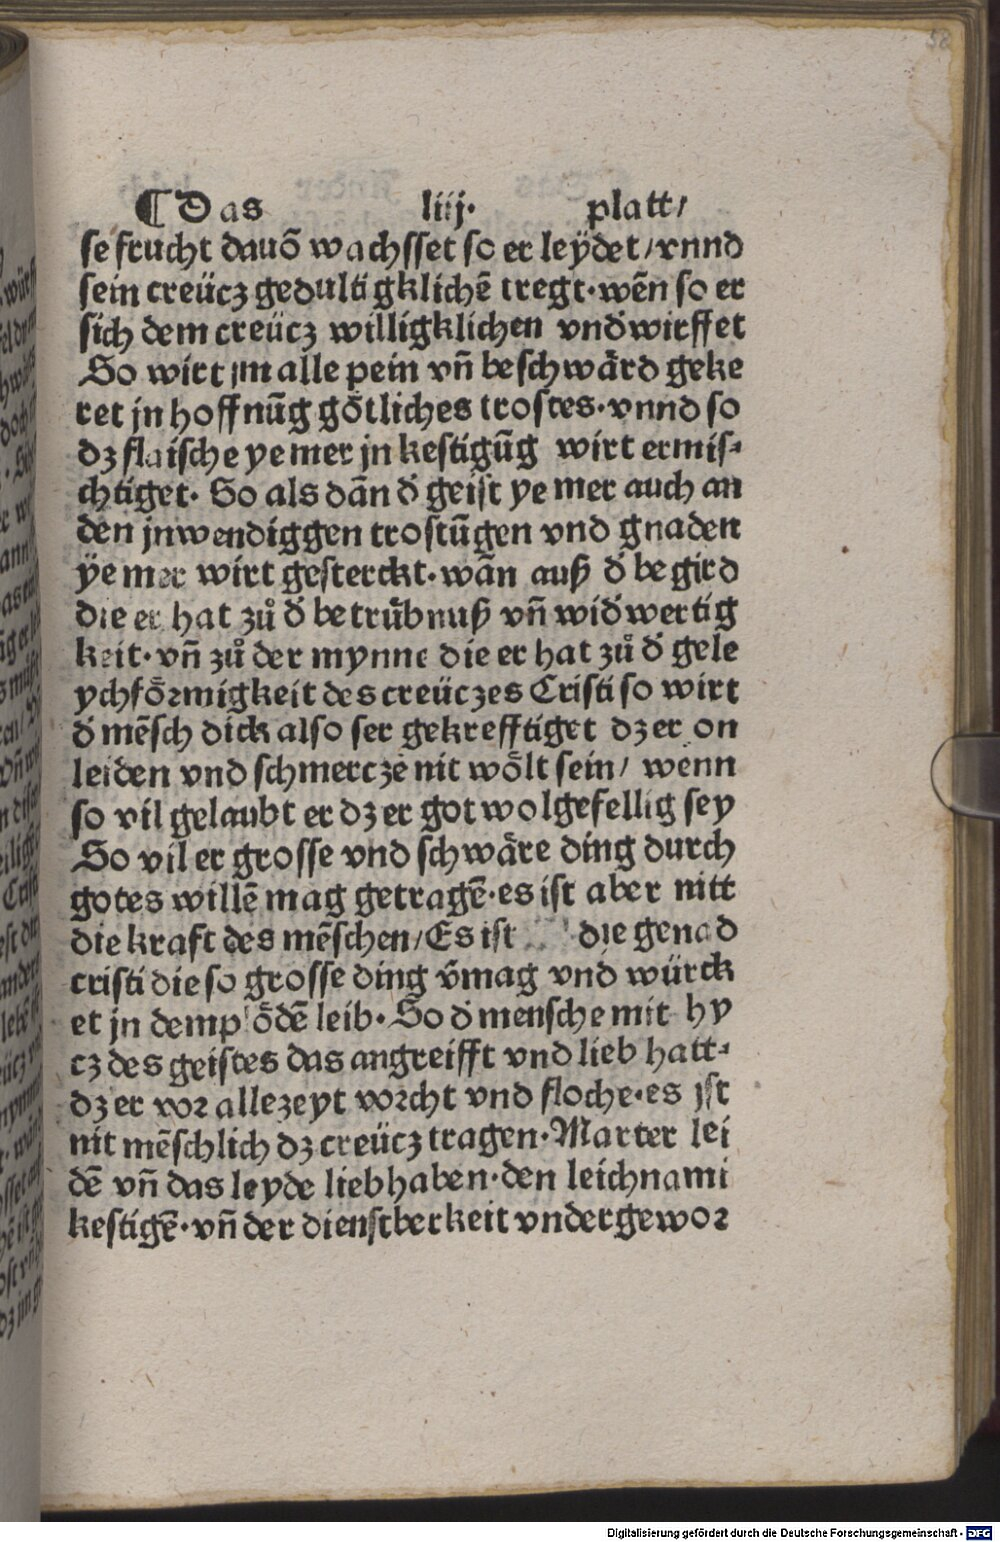 58
¶ Das liij. platt/
se frucht dauō wachsset so er leÿdet/vnnd
sein creücz gedultigklichē tregt·wēn so er
sich dem creücz willigklichen vnd̾wirffet
So wirt jm alle pein vn̄ beschwård geke
ret jn hoffnūg gőtliches trostes·vnnd so
dz flaische ye mer jn kestigūg wirt ermis⸗
chtiget· So als dān d̾ geist ye mer auch an
den jnwendiggen trostūgen vnd gnaden
ÿe mer wirt gesterckt·wān auß d̾ begird
die er hat zů d̾ betrůbnuß vn̄ wid̾wertig
keit·vn̄ zů der mynne die er hat zů d̾ gele
ychfőrmigkeit des creüczes Cristi so wirt
d̾ mēsch dick also ser gekrefftiget dz er on
leiden vnd schmerczē nit wőlt sein/ wenn
so vil gelaubt er dz er got wolgefellig sey
So vil er grosse vnd schwåre ding durch
gotes willē mag getragē·es ist aber nitt
die kraft des mēschen/Es ist die genad
cristi die so grosse ding v̄mag vnd würck
et jn dem plődē leib·So d̾ mensche mit hy
cz des geistes das angreifft vnd lieb hatt⸗
dz er vor allezeyt vorcht vnd floche·es jst
nit mēschlich dz creücz tragen·Marter lei
dē vn̄ das leyde liebhaben·den leichnam i
kestigē·vn̄ der dienstberkeit vndergewor
Digitalisierung gefördert durch die Deutsche Forschungsgemeinschaft - DFG